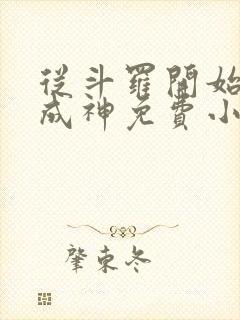 從斗羅開始
成神免費小
肇東冬